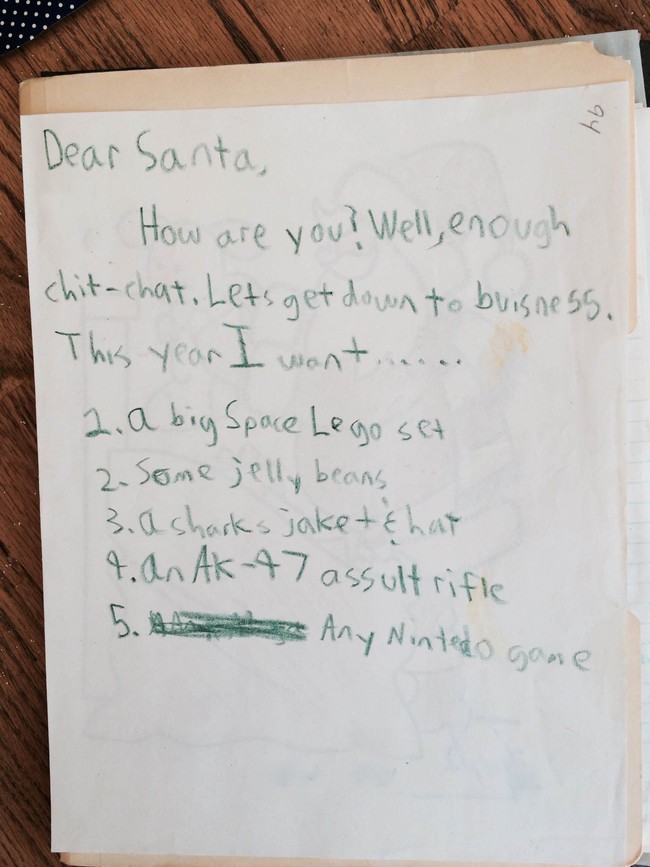 94
Dear Santa,
How are you? Well, enough
chit-chat. Lets get down to buisness.
This year I want......
1. A big Space Lego set
2. Some jelly beans
3. A sharks jaket & hat
4. An AK-47 assult rifle
5. Any Nintedo game